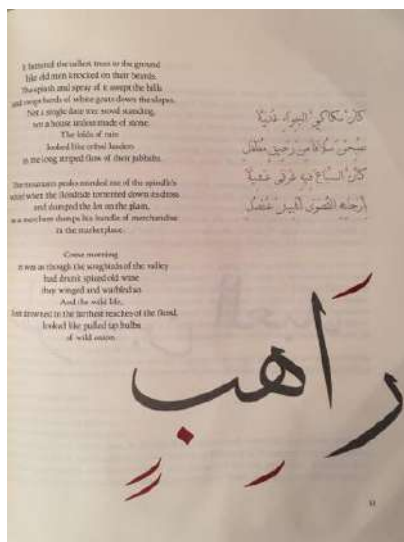 It battered the tallest trees to the ground
like old men knocked on their beards.
The splash and spray of it swept the hills
and swept herds of white goats down the slopes.
Not a single date tree stood standing,
not a house unless made of stone.
The folds of rain
looked like tribal leaders
in the long striped flow of their jubbahs.
The mountain peaks reminded me of the spindle's
when the floodtide tormented down its dross
and dumped the lot on the plain,
as a merchant dumps his bundle of merchandise
in the marketplace.
Come morning
it was as though the songbirds of the valley
had drunk spiced old wine
they winged and warbled so.
And the wild life,
drowned in the farthest reaches of the flood,
looked like pulled up bulbs
of wild onion.
كأن مكاكي الجواء غدية
صبحن سلافا من رحيق مفلفل
كأن السباع فيه غرقى عشية
بأرجائه القصوى أنابيش عنصل
رَاهِبٍ